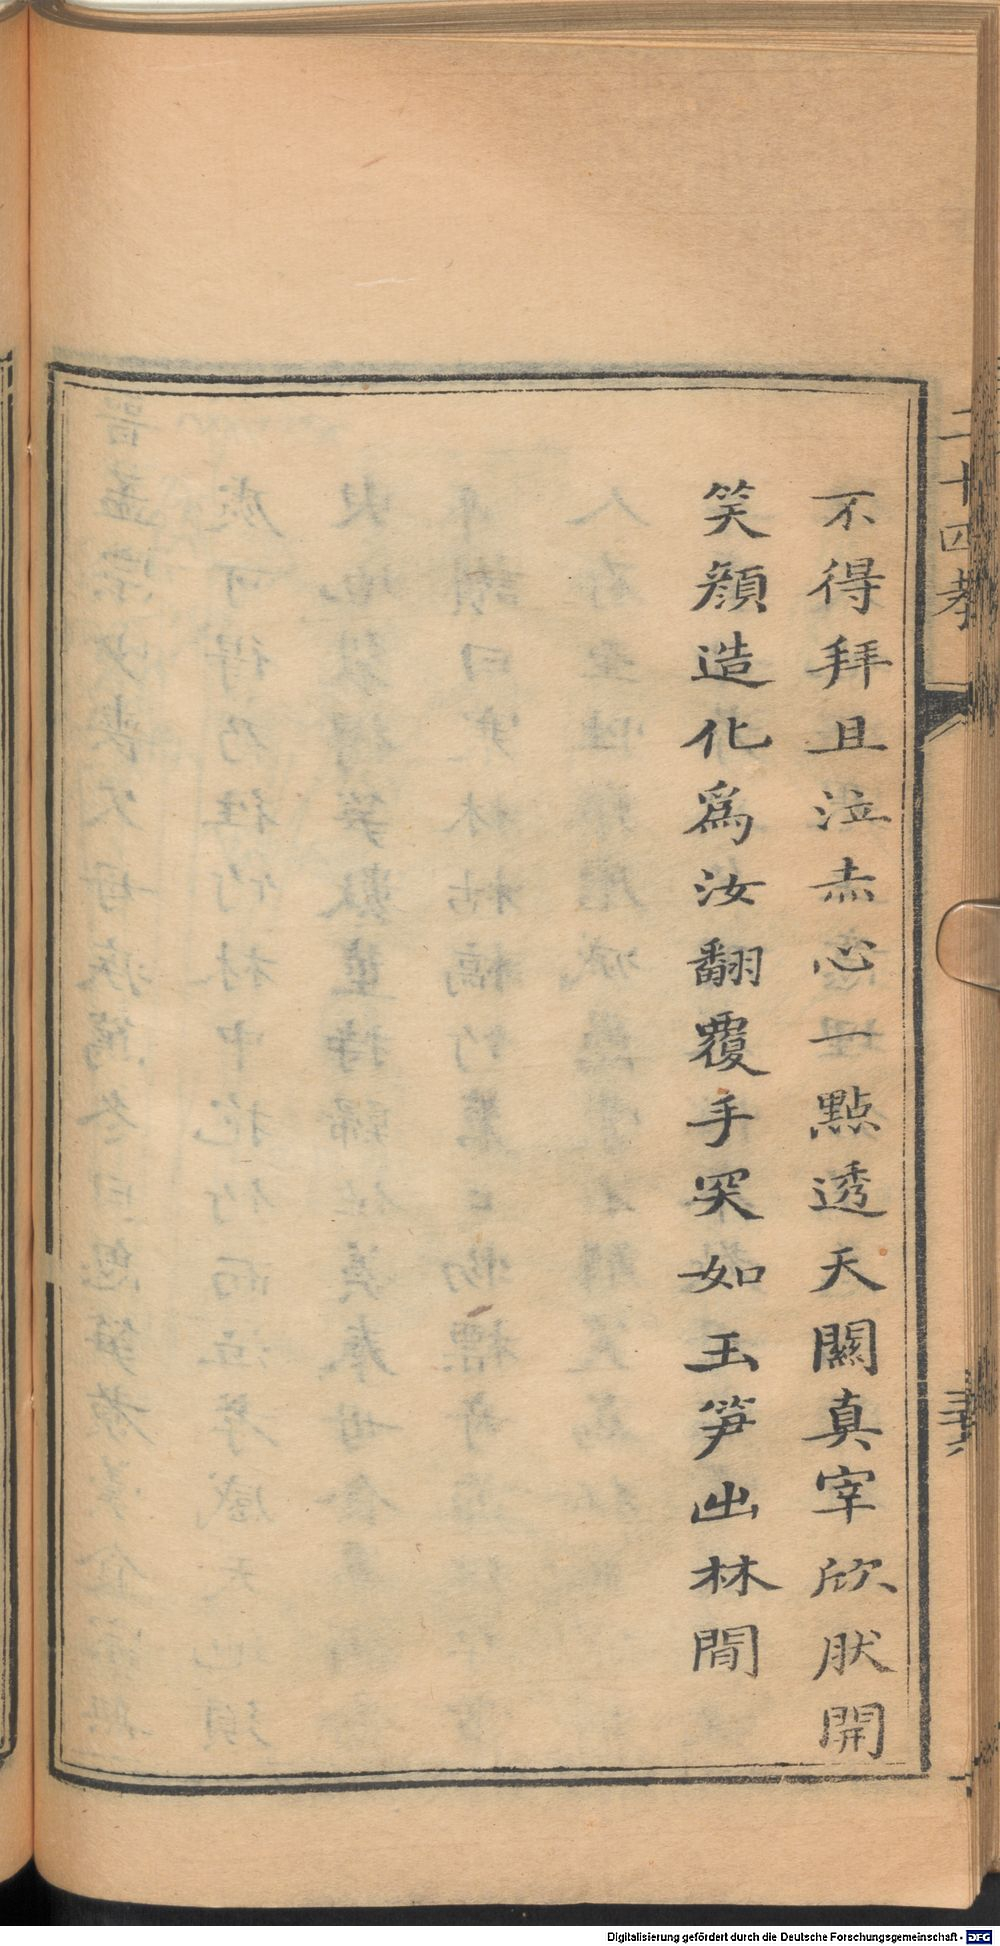 不得拜且泣赤心一點透天關真宰欣肰開
笑顔造化爲汝翻覆手突如玉笋出林間
二十四孝
Digitalisierung gefördert durch die Deutsche Forschungsgemeinschaft - DFG